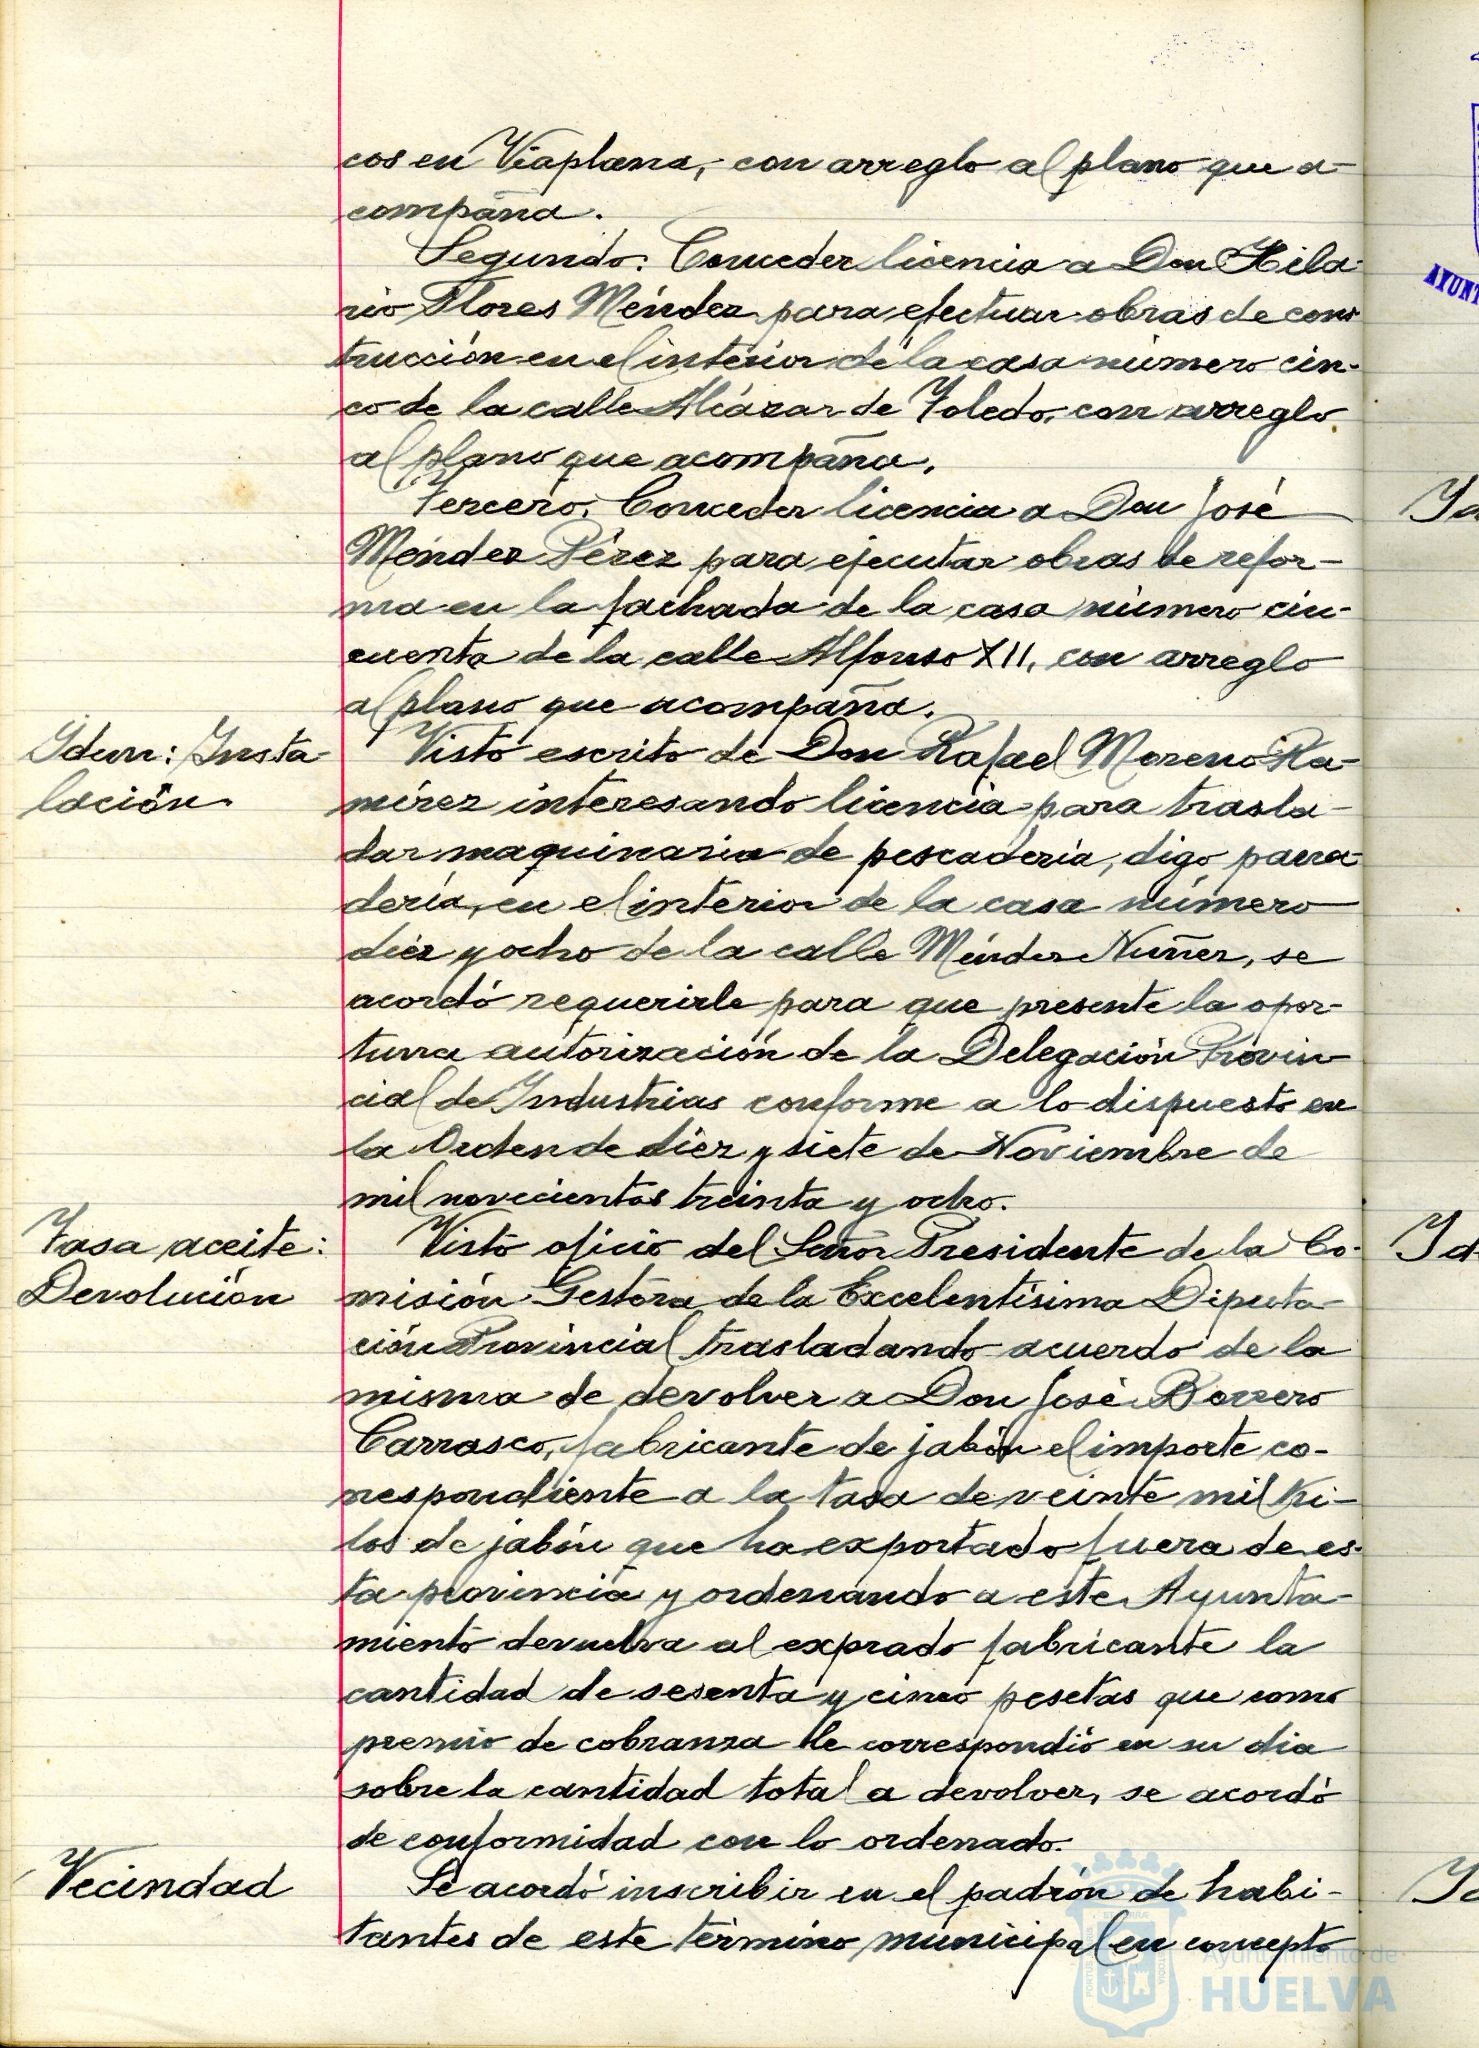 cos en Viaplana, con arreglo al plano que a-
compaña.
Segundo. Conceder licencia a Don Hila-
rio Flores Méndez para efectuar obras de cons-
trucción en el interior de la casa número cin-
co de la calle Alcázar de Toledo, con arreglo
al plano que acompaña.
Tercero. Conceder licencia a Don José
Méndez Pérez para ejecutar obras de refor-
ma en la fachada de la casa número cin-
cuenta de la calle Alfonso XII, con arreglo
al plano que acompaña.
Idem: Insta-
lación.
Visto escrito de Don Rafael Moreno Ra-
mírez interesando licencia para trasla-
dar maquinaria de pescadería, digo pana-
dería, en el interior de la casa número
diez y ocho de la calle Méndez Nuñez, se
acordó requerirle para que presente la opor-
tuna autorización de la Delegación Provin-
cial de Industrias conforme a lo dispuesto en
la Orden de diez y siete de Noviembre de
mil novecientos treinta y ocho.
Tasa aceite:
Devolución
Visto oficio del Señor Presidente de la Co-
misión Gestora de la Excelentísima Diputa-
ción Provincial trasladando acuerdo de la
misma de devolver a Don José Borrero
Carrasco, fabricante de jabón el importe co-
rrespondiente a la tasa de veinte mil ki-
los de jabón que ha exportado fuera de es-
ta provincia y ordenando a este Ayunta-
miento devuelva al exprado fabricante la
cantidad de sesenta y cinco pesetas que como
premio de cobranza le correspondió en su dia
sobre la cantidad total a devolver, se acordó
de conformidad con lo ordenado.
Vecindad
Se acordó inscribir en el padrón de habi-
tantes de este término municipal en concepto
Ayuntamiento de
HUELVA